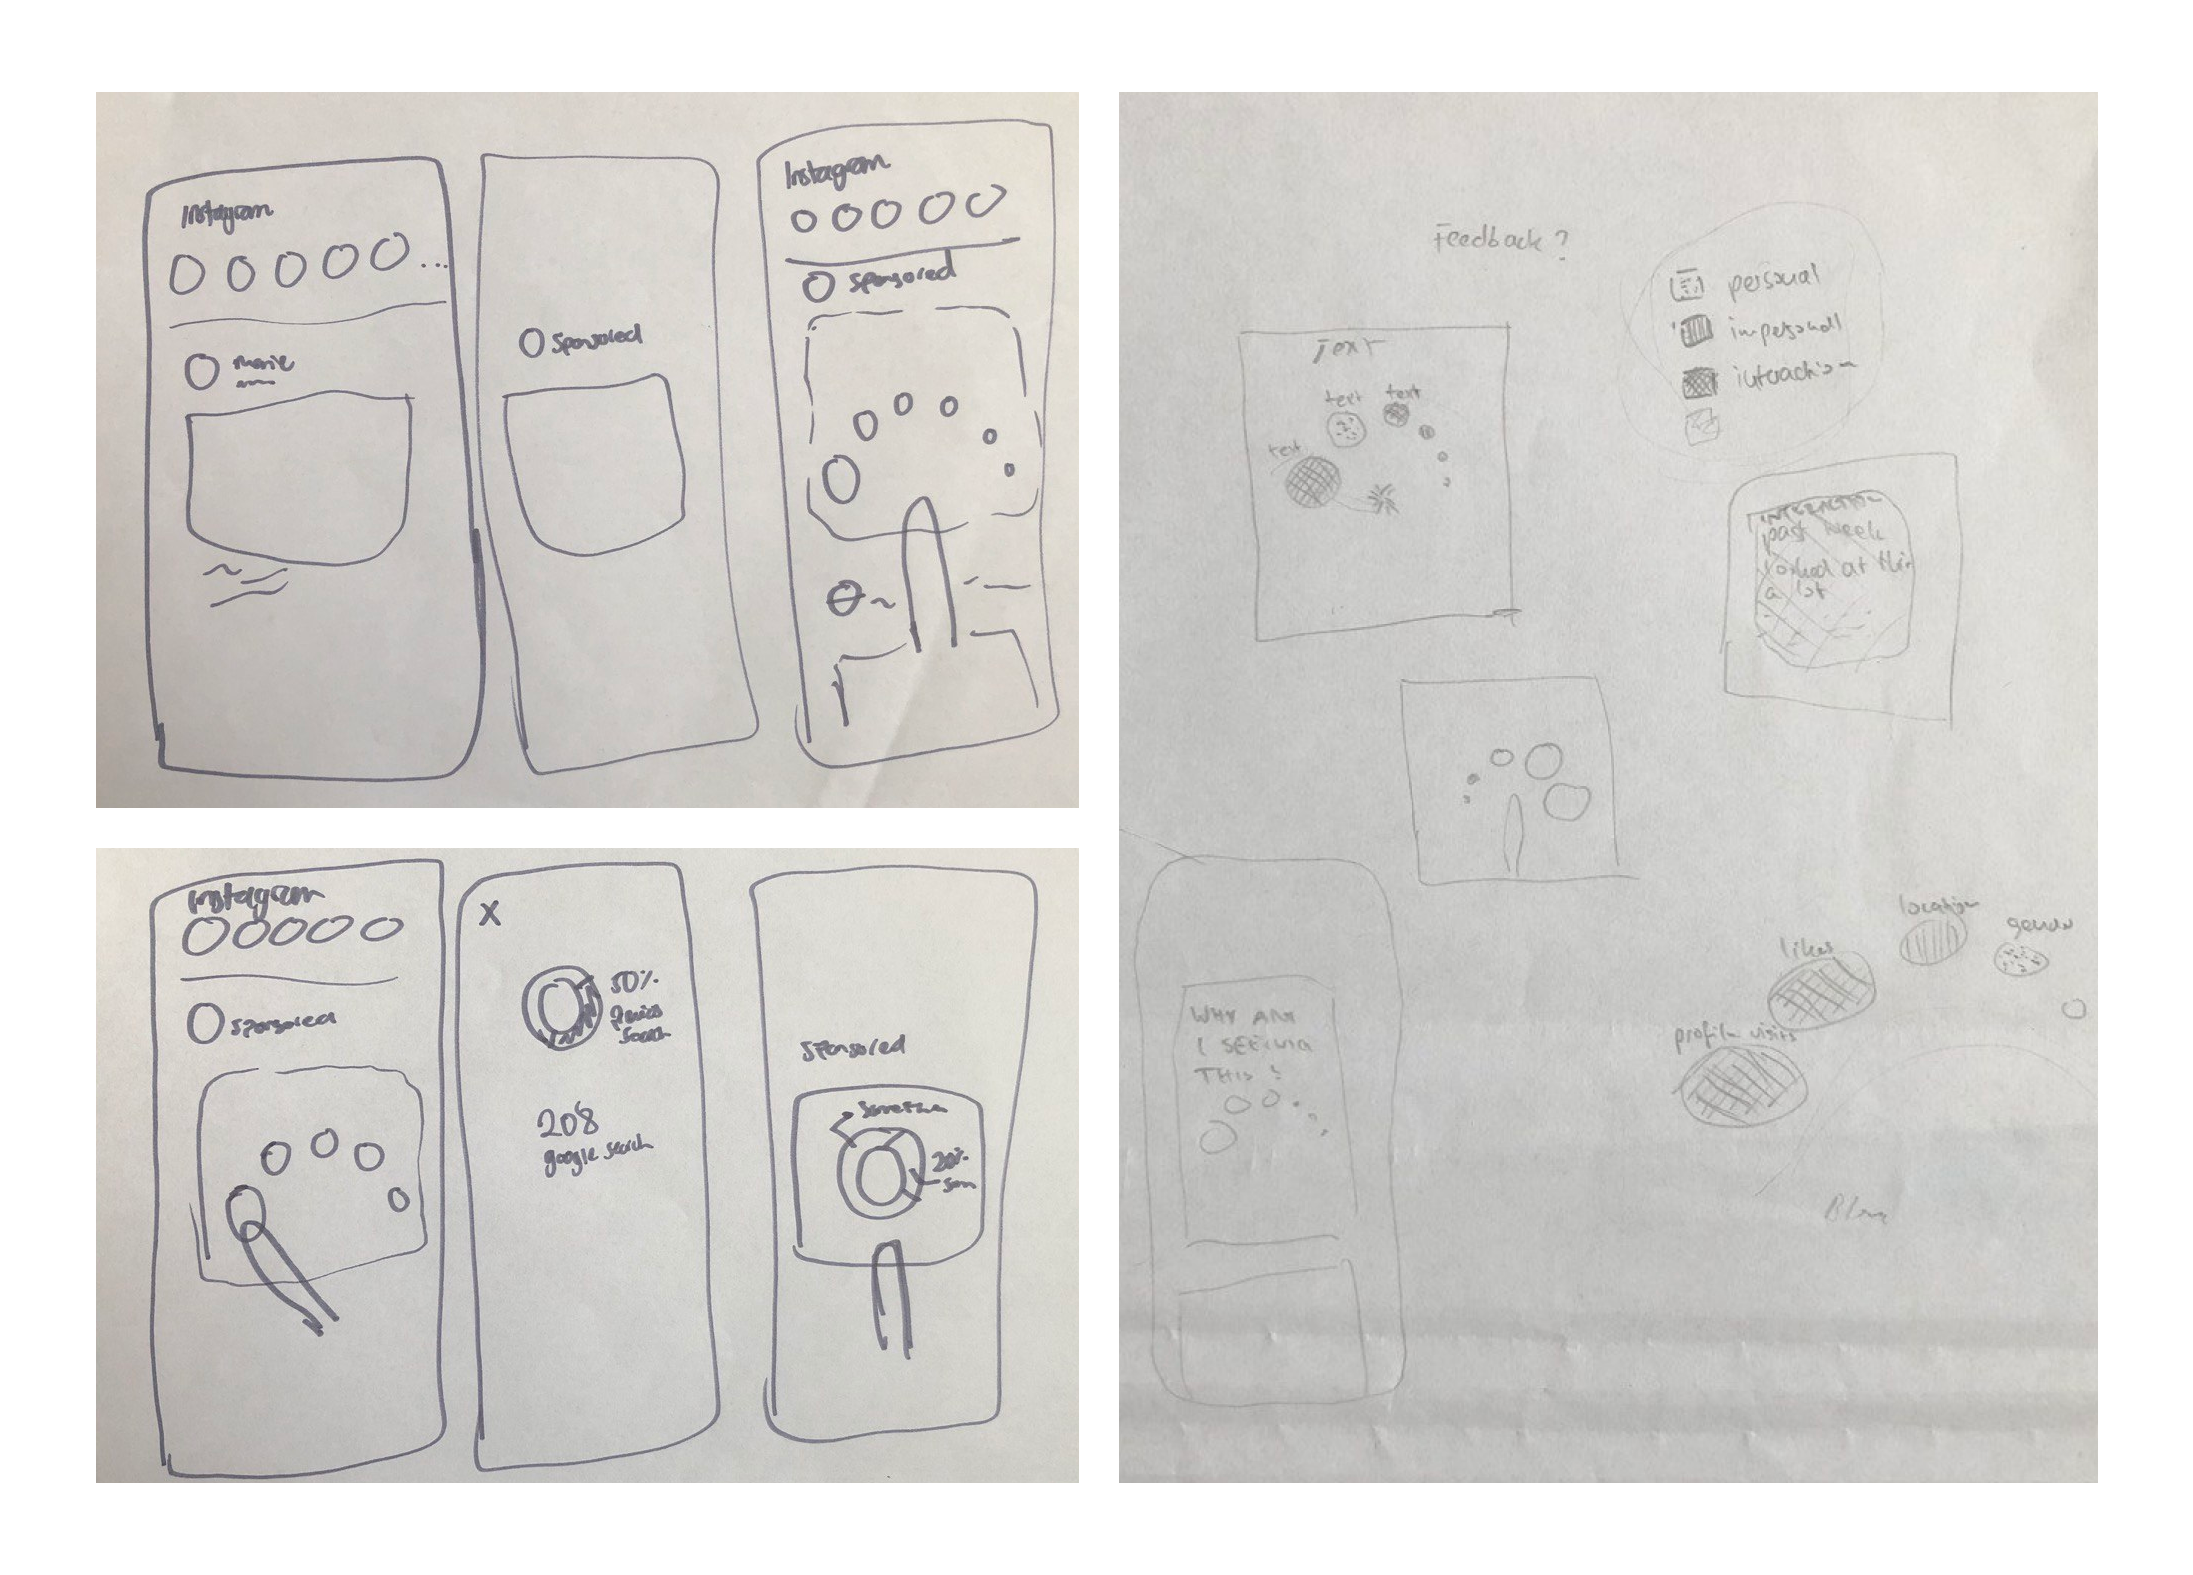 Instagram
...
marie
Sponsored
Instagram
Sponsored
Instagram
Sponsored
X
50%
search
208
google search
Sponsored
20%
Feedback?
personal
impersonal
interaction
Text
text
text
text
INTERACTION
past week
looked at this
a lot
WHY AM
I SEEING
THIS?
location
gender
likes
profile visits